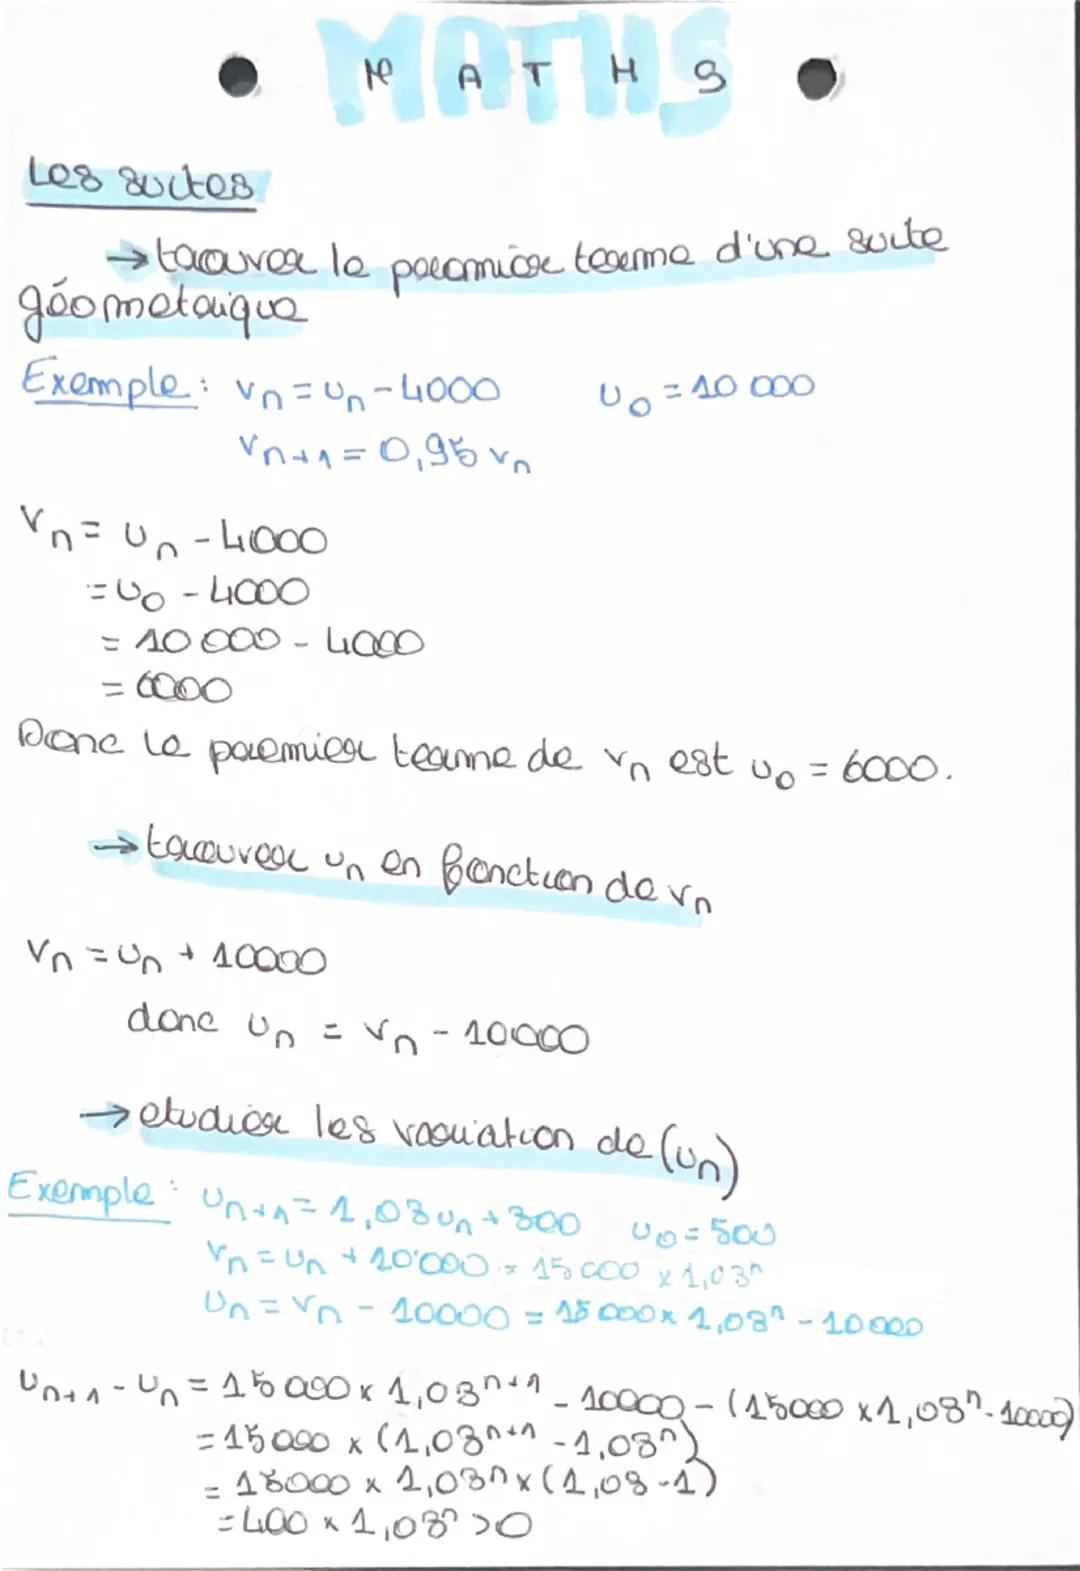 MATHS
Les suites
→ trouver le premier terme d'une suite
géometrique
Exemple : vn = un - 4000 u0 = 10 000
vn+1 = 0,95 vn
vn = un - 4000
= u0 - 4000
= 10 000 - 4000
= 6000
Donc le premier terme de vn est u0 = 6000.
→ trouver un en fonction de vn
vn = un + 10000
donc un = vn - 10000
→ etudier les variation de (un)
Exemple : un+1 = 1,03un + 300 u0 = 500
vn = un + 10'000 = 15 000 x 1,03ⁿ
un = vn - 10000 = 15 000 x 1,03ⁿ - 10 000
un+1 - un = 15 000 x 1,03ⁿ⁺¹ - 10000 - (15000 x 1,03ⁿ - 10000)
= 15 000 x (1,03ⁿ⁺¹ - 1,03ⁿ)
= 15000 x 1,03ⁿ x (1,03 - 1)
= 400 x 1,03ⁿ > 0